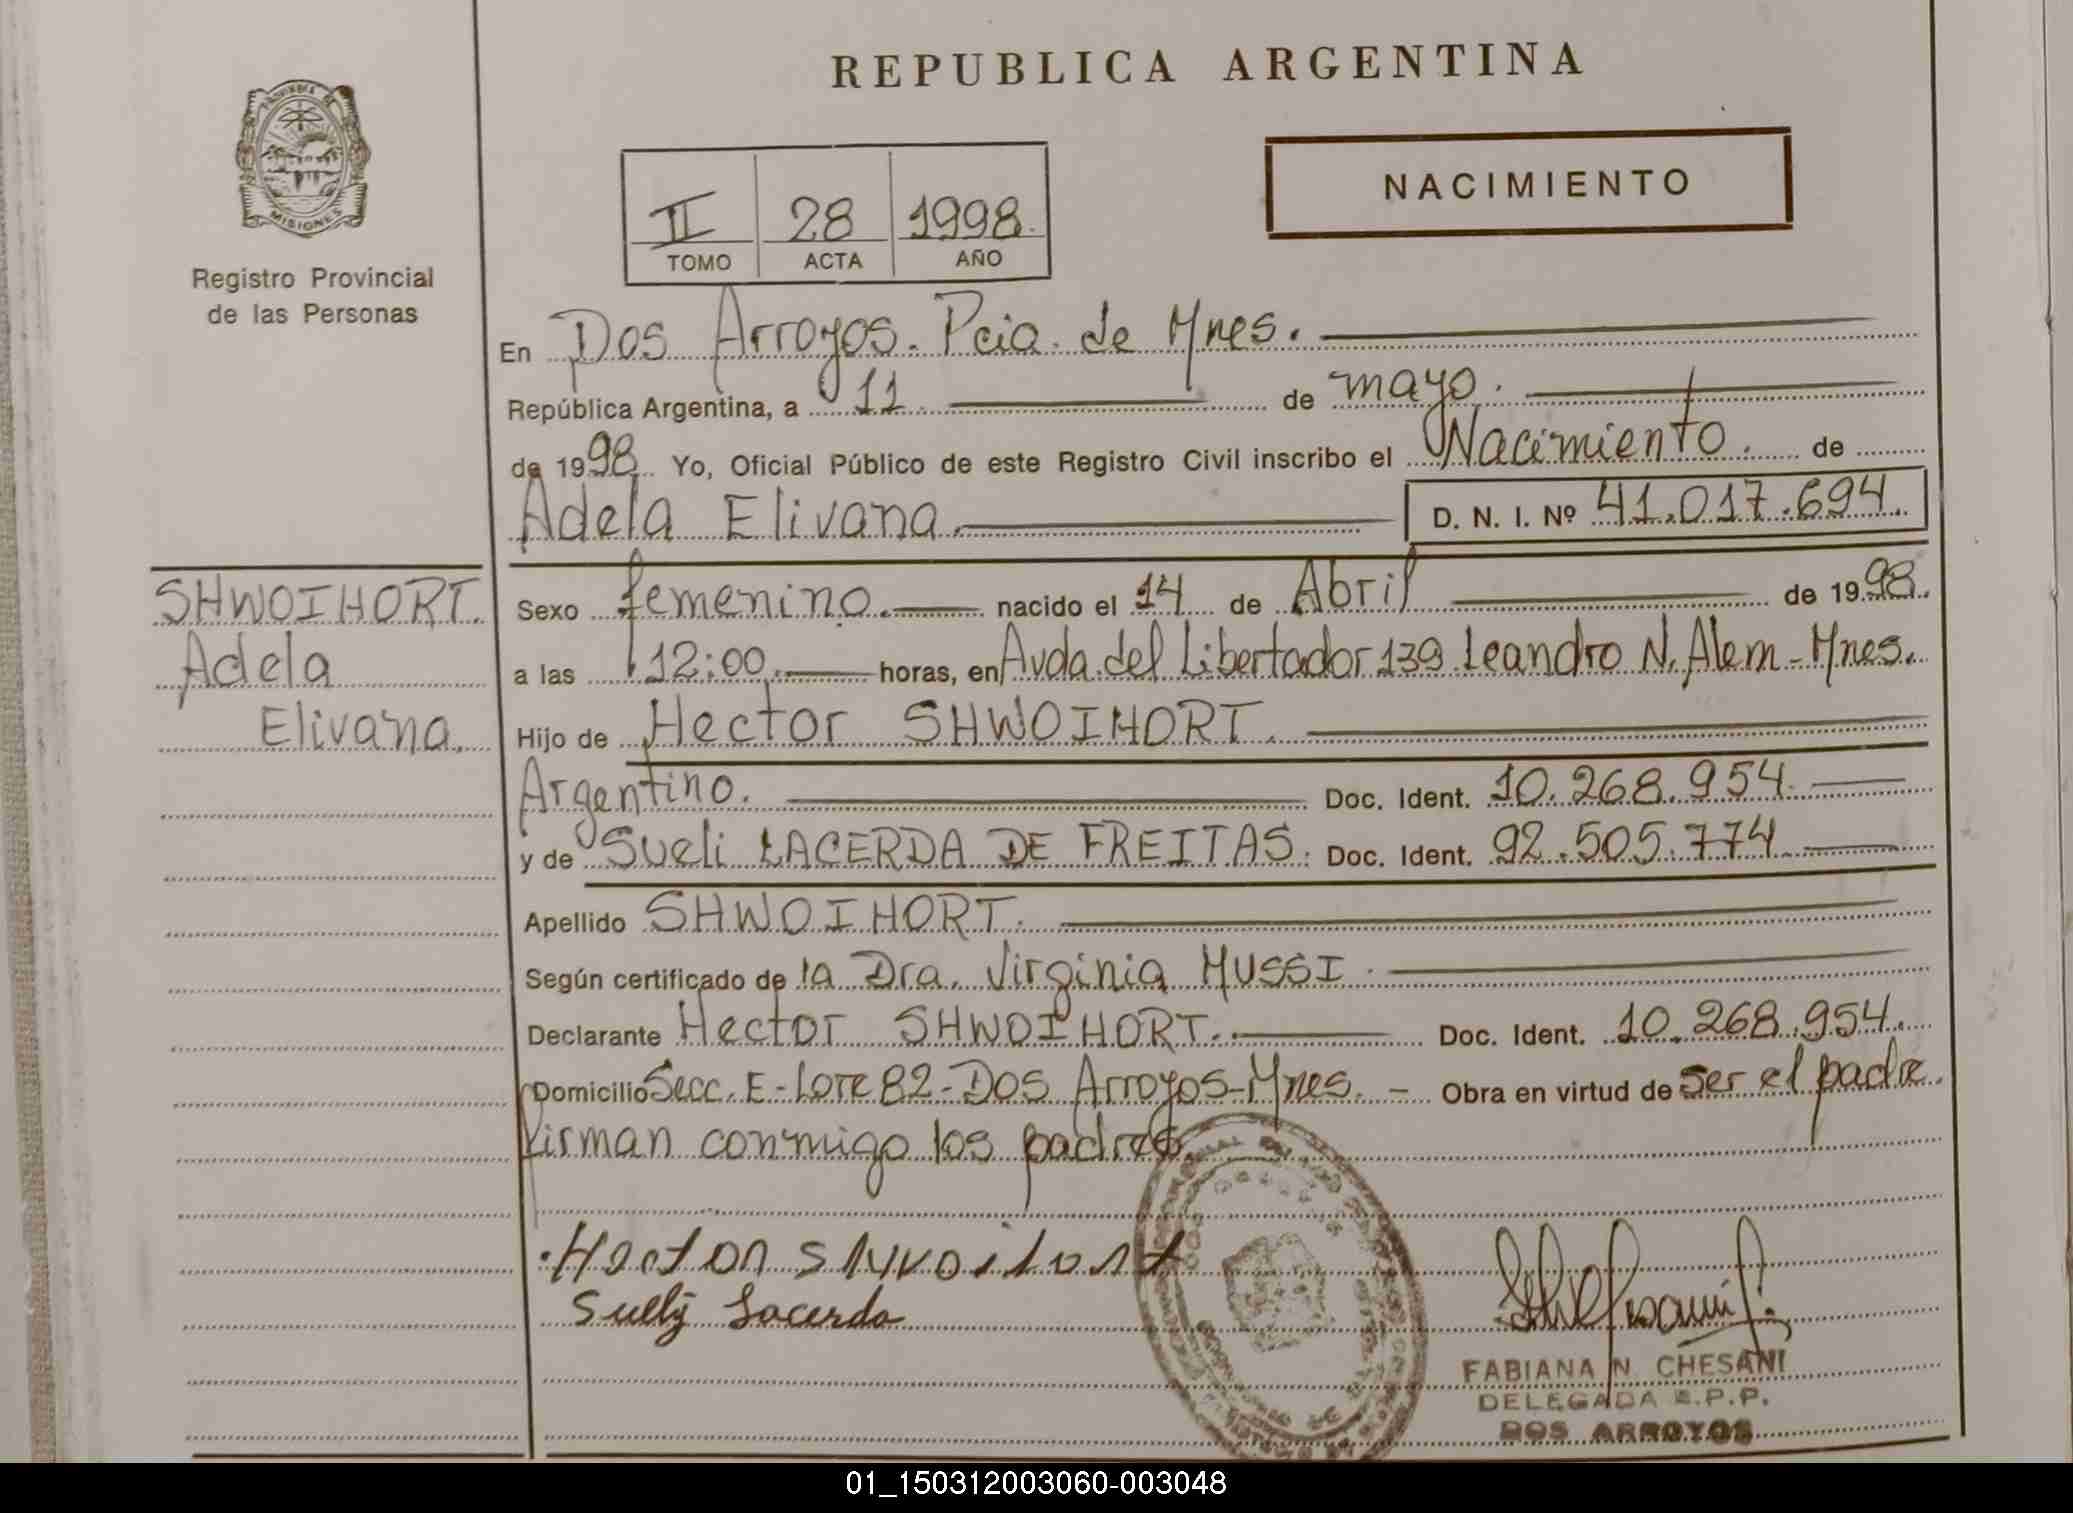 REPUBLICA ARGENTINA
PROVINCIA DE
MISIONES
Registro Provincial
de las Personas
II 28 1998.
TOMO ACTA AÑO
NACIMIENTO
En Dos Arroyos. Pcia. de Mnes.
República Argentina, a 11 de mayo.
de 1998 Yo, Oficial Público de este Registro Civil inscribo el Nacimiento. de
Adela Elivana. D. N. I. Nº 41.017.694.
SHWOIHORT.
Adela
Elivana.
Sexo femenino. nacido el 14 de Abril de 1998.
a las 12:00. horas, en Avda. del Libertador 139 Leandro N. Alem - Mnes.
Hijo de Hector SHWOIHORT.
Argentino. Doc. Ident. 10.268.954.
y de Sueli LACERDA DE FREITAS. Doc. Ident. 92.505.774
Apellido SHWOIHORT.
Según certificado de la Dra. Virginia MUSSI.
Declarante Hector SHWOIHORT. Doc. Ident. 10.268.954.
Domicilio Secc. E - Lote 82 - Dos Arroyos - Mnes. - Obra en virtud de ser el padre.
firman conmigo los padres.
Hector Shwoihort
Suelly Lacerda
FABIANA N. CHESANI
DELEGADA R.P.P.
DOS ARROYOS
01_150312003060-003048